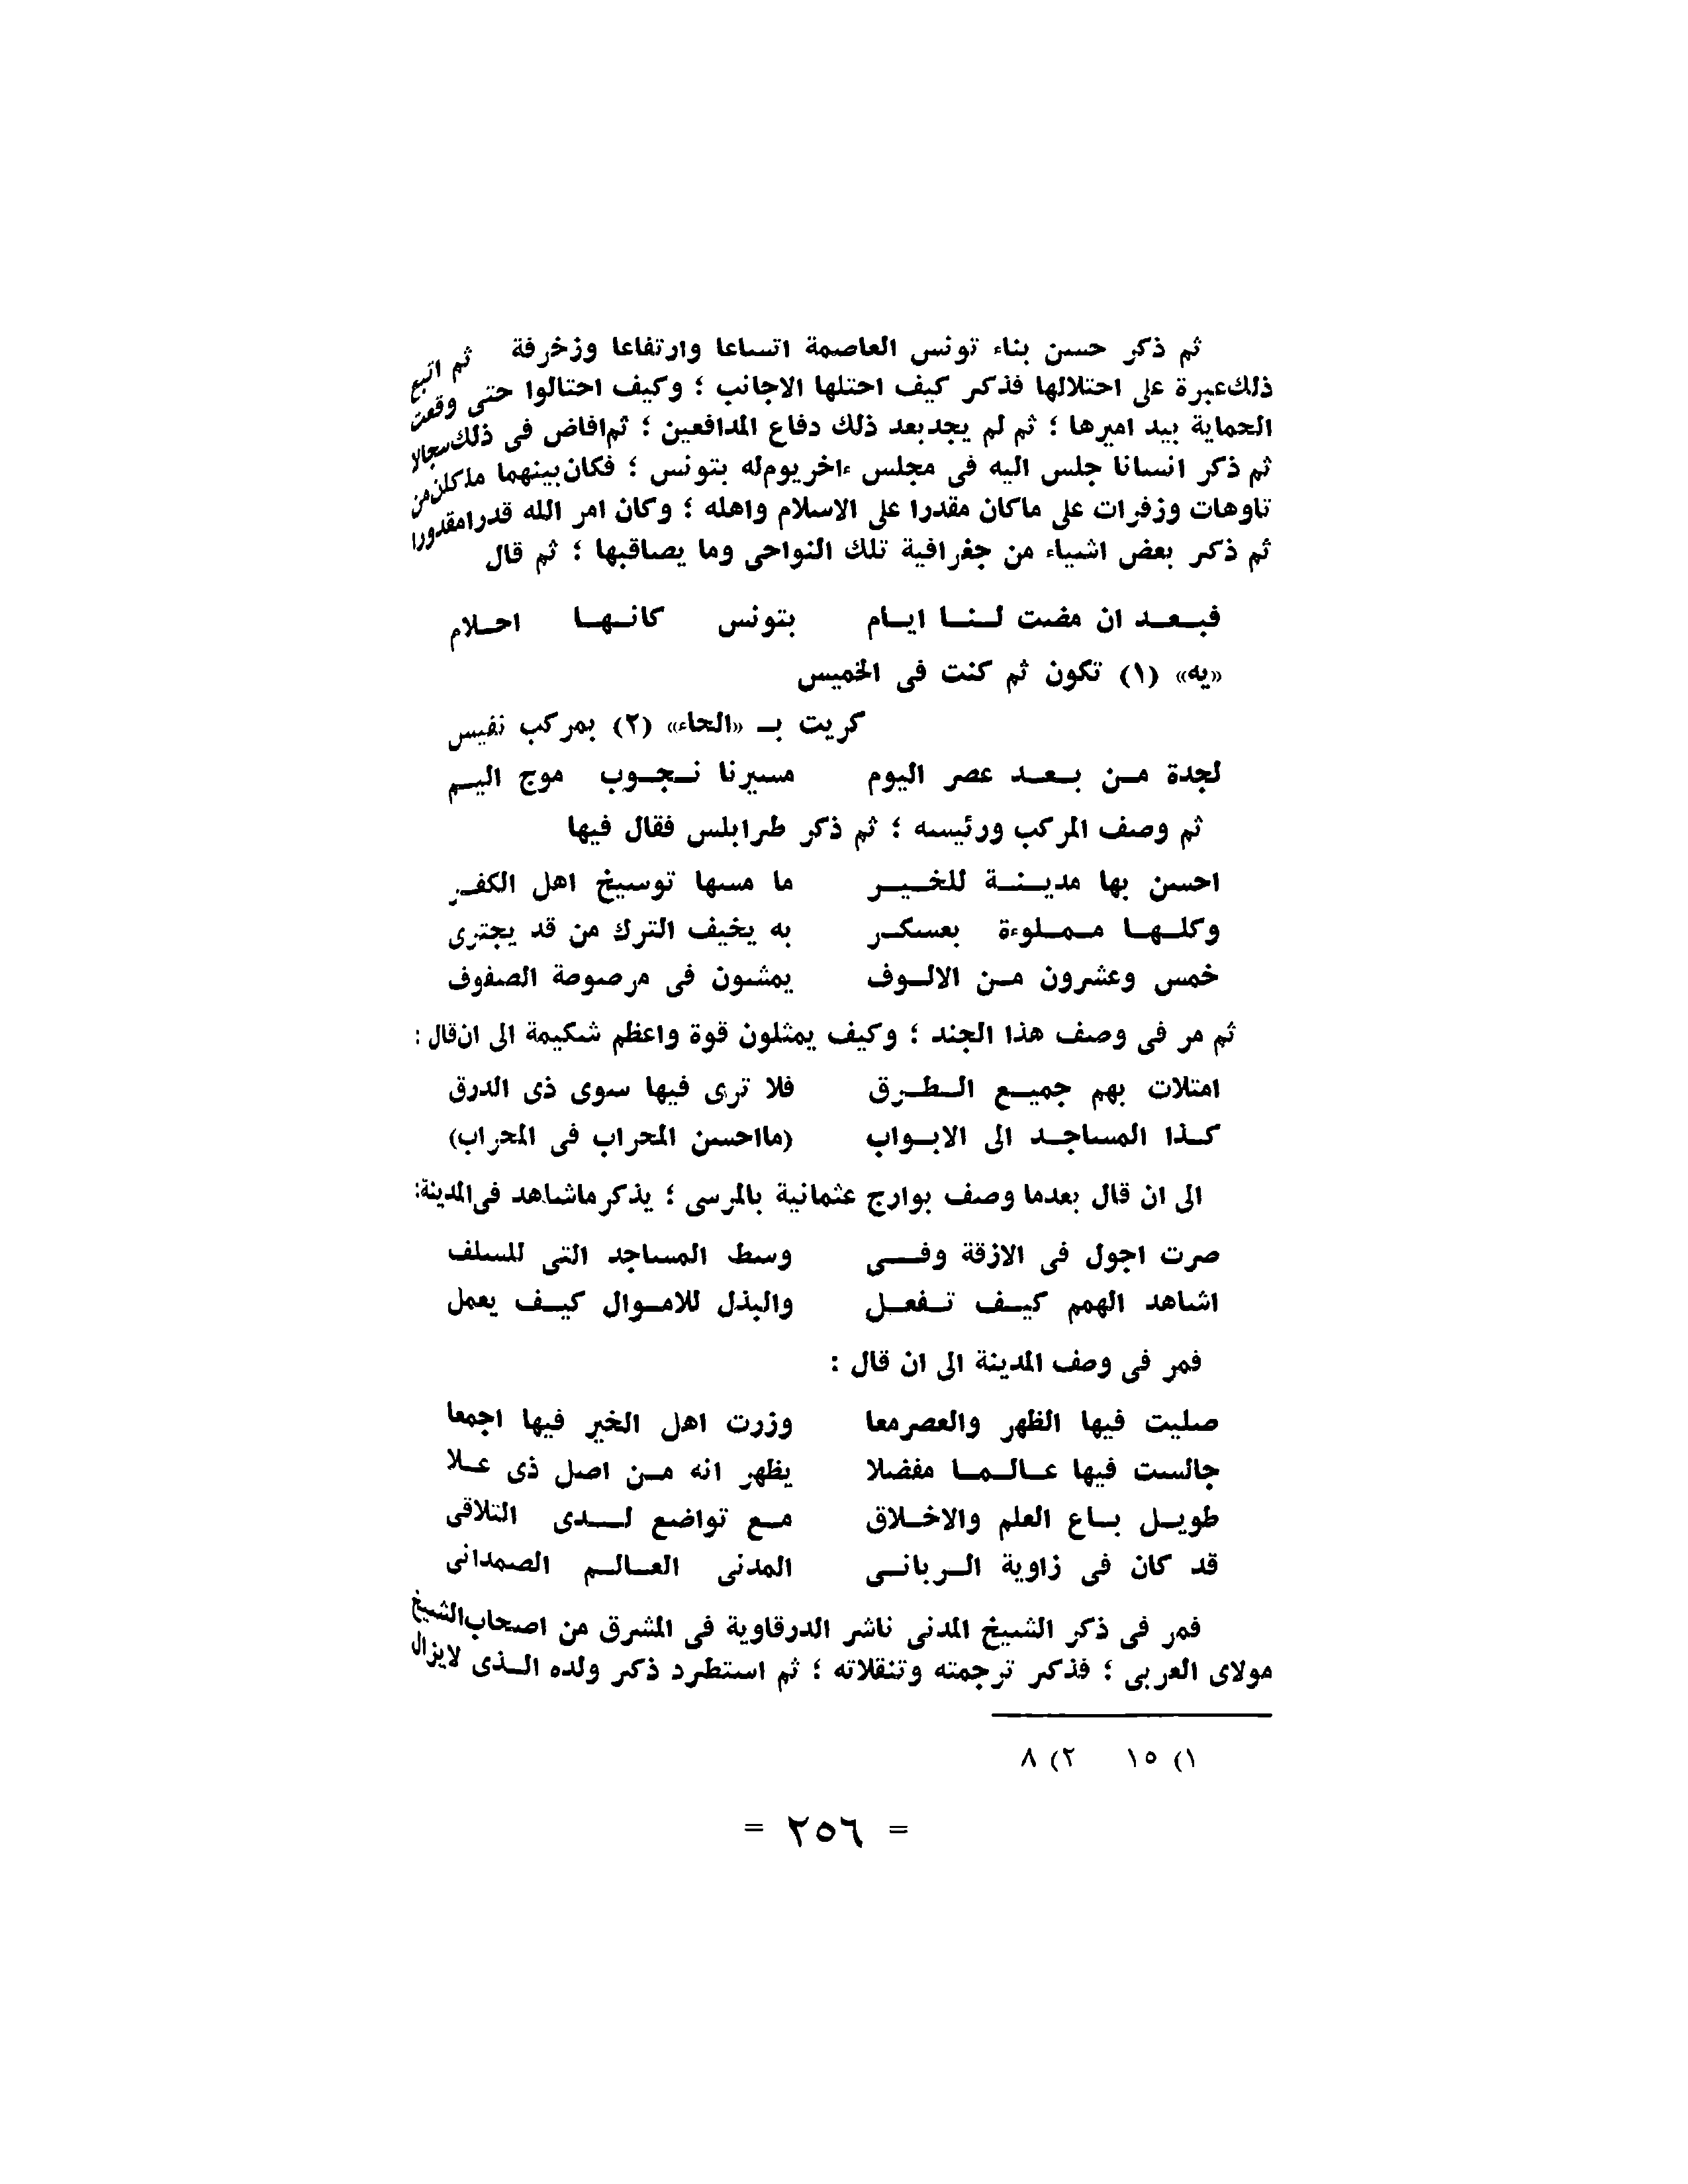 ثم ذكر حسن بناء تونس العاصمة اتساعا وارتفاعا وزخرفة ثم اتبع
ذلك عبرة على احتلالها فذكر كيف احتلها الاجانب ؛ وكيف احتالوا حتى وقعت
الحماية بيد اميرها ؛ ثم لم يجد بعد ذلك دفاع المدافعين ؛ ثم افاض فى ذلك سجالا
ثم ذكر انسانا جلس اليه فى مجلس ءاخر يوم له بتونس ؛ فكان بينهما ما كان من
تاوهات وزفرات على ماكان مقدرا على الاسلام واهله ؛ وكان امر الله قدرا مقدورا
ثم ذكر بعض اشياء من جغرافية تلك النواحى وما يصاقبها ؛ ثم قال
فبعد ان مضت لنا ايام بتونس كانها احلام
«يه» (١) تكون ثم كنت فى الخميس
كريت بـ «الحاء» (٢) بمركب نفيس
لجدة من بعد عصر اليوم مسيرنا نجوب موج اليم
ثم وصف المركب ورئيسه ؛ ثم ذكر طرابلس فقال فيها
احسن بها مدينة للخير ما مسها توسيخ اهل الكفر
وكلها مملوءة بعسكر به يخيف الترك من قد يجترى
خمس وعشرون من الالوف يمشون فى مرصوصة الصفوف
ثم مر فى وصف هذا الجند ؛ وكيف يمثلون قوة واعظم شكيمة الى ان قال :
امتلات بهم جميع الطرق فلا ترى فيها سوى ذى الدرق
كذا المساجد الى الابواب (ما احسن المحراب فى المحراب)
الى ان قال بعدما وصف بوارج عثمانية بالمرسى ؛ يذكر ماشاهد فى المدينة:
صرت اجول فى الازقة وفى وسط المساجد التى للسلف
اشاهد الهمم كيف تفعل والبذل للاموال كيف يعمل
فمر فى وصف المدينة الى ان قال :
صليت فيها الظهر والعصر معا وزرت اهل الخير فيها اجمعا
جالست فيها عالما مفضلا يظهر انه من اصل ذى علا
طويل باع العلم والاخلاق مع تواضع لدى التلاقى
قد كان فى زاوية الربانى المدنى العالم الصمدانى
فمر فى ذكر الشيخ المدنى ناشر الدرقاوية فى المشرق من اصحاب الشيخ
مولاى العربى ؛ فذكر ترجمته وتنقلاته ؛ ثم استطرد ذكر ولده الذى لايزال
١) ١٥ ٢) ٨
= ٢٥٦ =